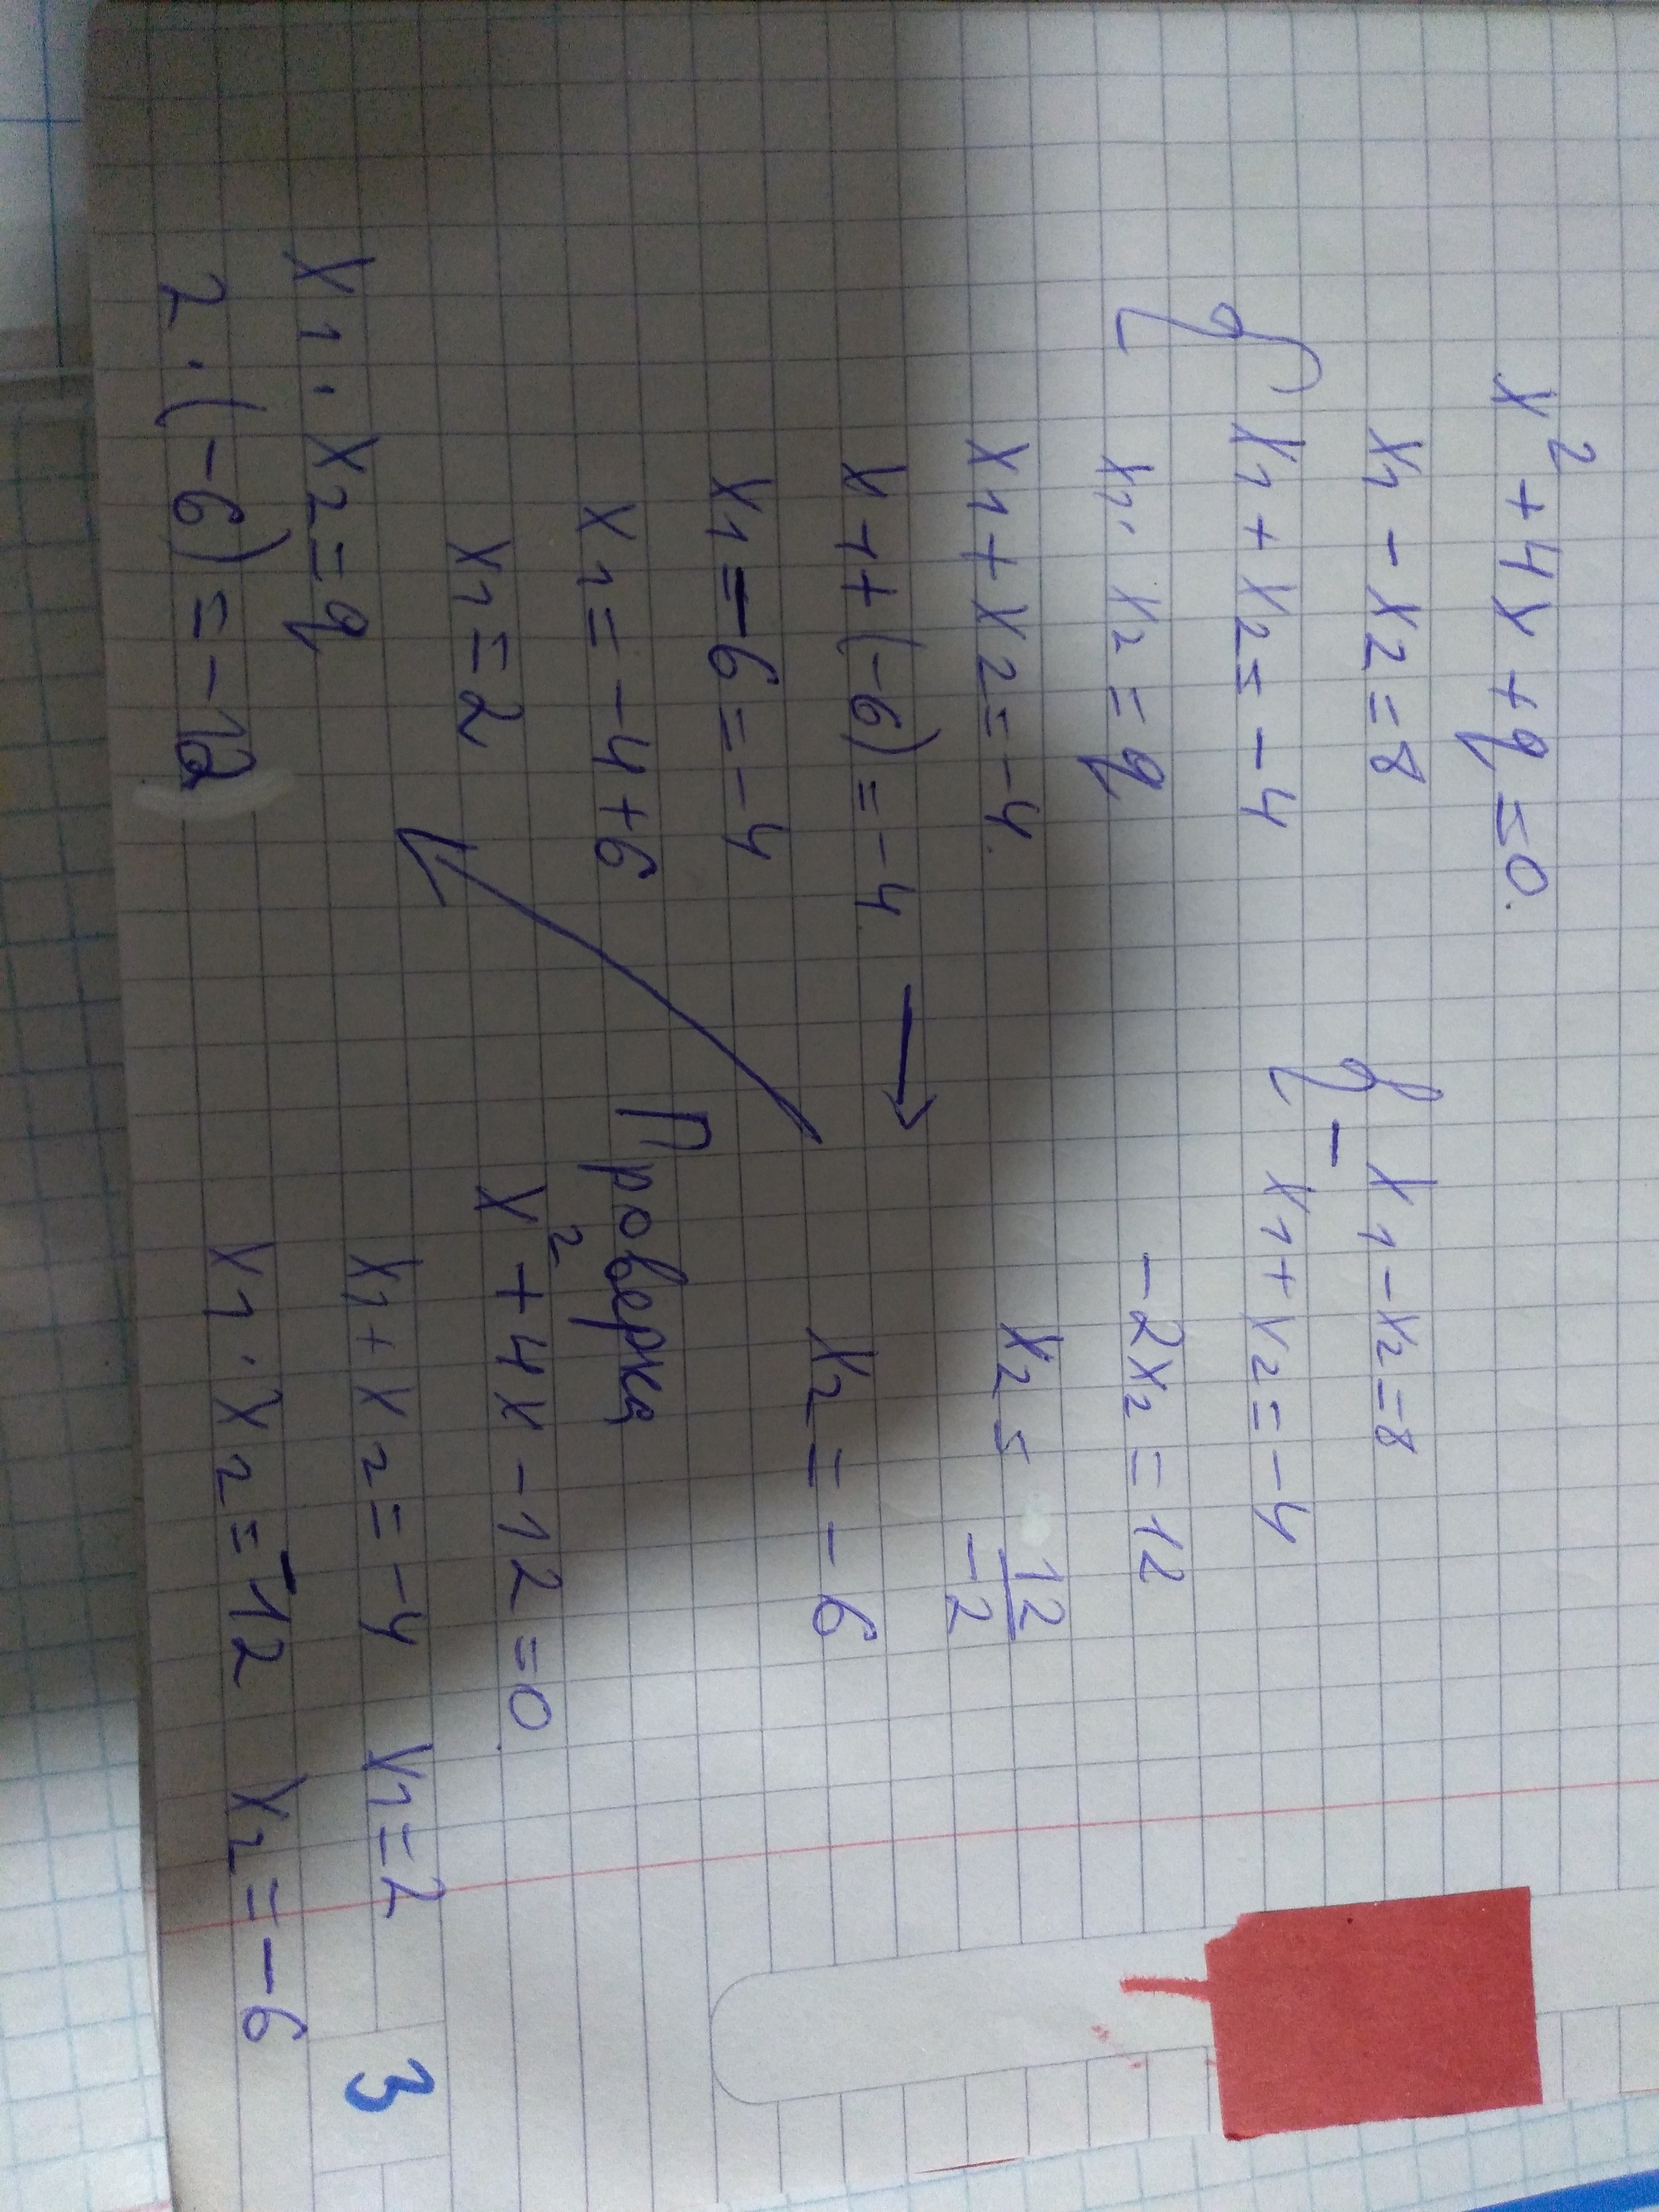 x² + 4x + q = 0.
x₁ - x₂ = 8
{ x₁ + x₂ = -4
x₁ · x₂ = q
x₁ + x₂ = -4.
x₁ + (-6) = -4. →
x₁ = -6 = -4
x₁ = -4 + 6
x₁ = 2
x₁ · x₂ = q
2 · (-6) = -12
{ - x₁ - x₂ = 8
x₁ + x₂ = -4
-2x₂ = 12
x₂ = 12/-2
x₂ = -6
Проверка
x² + 4x - 12 = 0.
x₁ + x₂ = -4 x₁ = 2
x₁ · x₂ = -12 x₂ = -6
3